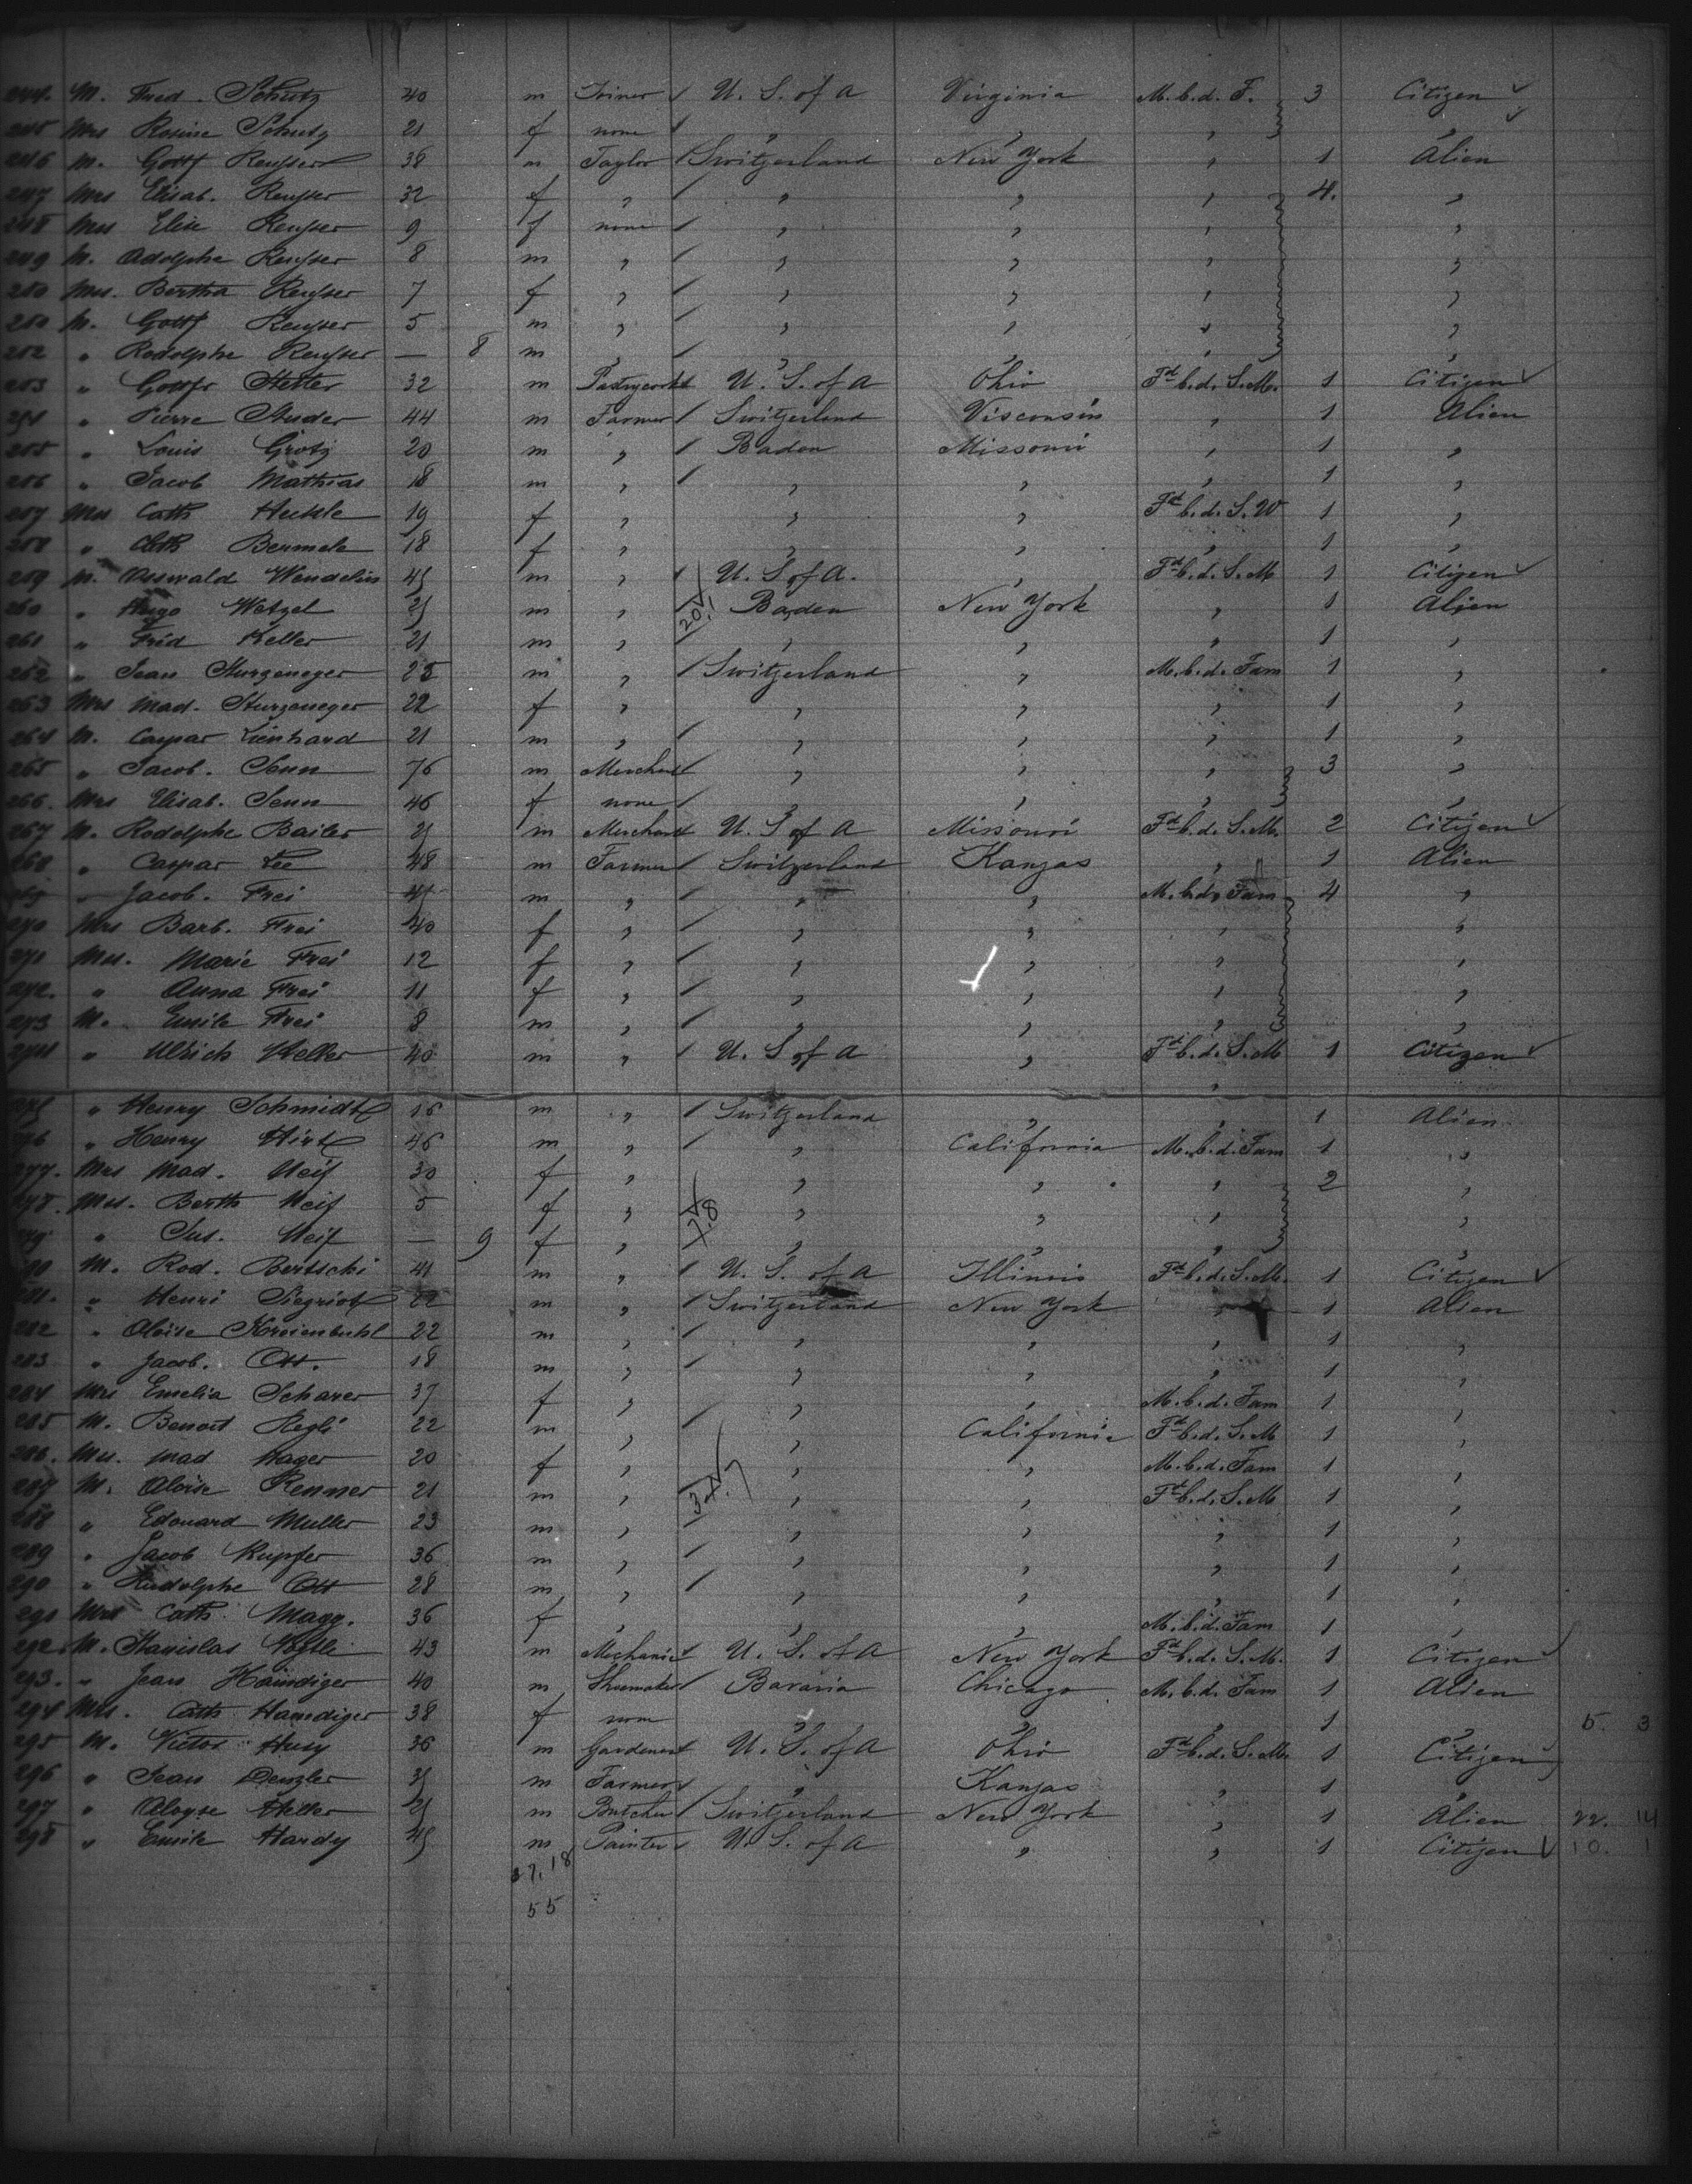 244. M. Fred. Schutz 40 m Joiner / U. S. of A Virginia M. b. d. F. 3 Citizen ✓
245 Mrs Rosine Schutz 21 f none / " " " "
246 M. Gottf Reusser 38 m Taylor / Switzerland New York " 1 Alien
247 Mrs Elisab. Reusser 32 f " / " " " 4. "
248 Mss Elise Reusser 9 f none / " " " "
249 M. Adolphe Reusser 8 m " / " " " "
250 Mss. Bertha Reusser 7 f " / " " " "
251 M. Gottf Reusser 5 m " / " " " "
252 " Rodolphe Reusser — 8 m " / " " " "
253 " Gottfr Stetter 32 m U. S. of A Ohio Fd b. d. S. M. 1 Citizen ✓
254 " Pierre Studer 44 m Farmer / Switzerland Visconsin " 1 Alien
255 " Louis Grotz 20 m " / Baden Missouri " 1 "
256 " Jacob Mathias 18 m " / " " " 1 "
257 Mss Cath 19 f " " " Fd b. d. S. W 1 "
258 " Cath 18 f " " " " 1 "
259 M. Osswald Wendelin 45 m " / U. S. of A. " Fd b. d. S. M 1 Citizen ✓
260 " Hugo Wetzel 25 m " 20.1 Baden New York " 1 Alien
261 " Fréd Keller 21 m " / " " " 1 "
262 " Jean Sturzeneger 25 m " / Switzerland " M. b. d. Fam 1 "
263 Mrs Mad. Sturzeneger 22 f " " " " 1 "
264 M. Caspar Lienhard 21 m " / " " " 1 "
265 " Jacob. Senn 76 m Merchant / " " " 3 "
266. Mrs Elisab. Senn 46 f none / " " " "
267 M. Rodolphe Bailer 25 m Merchant U. S of A Missouri Fd b. d. S. M. 2 Citizen ✓
268 " Caspar Fee 48 m Farmer / Switzerland Kanzas " 1 Alien
269 " Jacob. Frei 45 m " / " " M. b. d. Fam 4 "
270 Mrs Barb. Frei 40 f " / " " " "
271 Mss. Marie Frei 12 f " / " " " "
272. " Anna Frei 11 f " / " " " "
273 M. Emile Frei 8 m " / " " " "
274 " Ulrich Keller 40 m " / U. S of A " Fd b. d. S. M 1 Citizen ✓
275 " Henry Schmidt 16 m " / Switzerland " " 1 Alien
276 " Henry Hirt 46 m " / " California M. b. d. Fam 1 "
277. Mrs Mad. Neif 30 f " " " " 2 "
278. Mss. Berth Neif 5 f " 7.8 " " " "
279. " Sus. Neif — 9 f " / " " " "
280 M. Rod. Bertschi 41 m " / U. S. of A Illinois Fd b. d. S. M. 1 Citizen ✓
281. " Henri Siegrist 22 m " / Switzerland New York " 1 Alien
282 " Aloise Kreienbuhl 22 m " / " " " 1 "
283 " Jacob. Ott. 18 m " / " " " 1 "
284 Mrs Emelia Scharer 37 f " " " M. b. d. Fam 1 "
285 M. Benoit Regli 22 m " / " California Fd b. d. S. M 1 "
286. Mss. Mad Hager 20 f " " " M. b. d. Fam 1 "
287 M. Aloise Renner 21 m " " " Fd b. d. S. M 1 "
288 " Edouard Muller 23 m " / " " " 1 "
289 " Jacob Kupfer 36 m " / " " " 1 "
290 " Rudolphe Ott 28 m " / " " " 1 "
291 Mrs Cath. Magg. 36 f " " " M. b. d. Fam 1 "
292 M. Stanislas 43 m Mechanic / U. S. of A New York Fd b. d. S. M. 1 Citizen ✓
293. " Jean Haindiger 40 m Shoemaker / Bavaria Chicago M. b. d. Fam 1 Alien
294 Mrs. Cath Haindiger 38 f non " " " 1 " 5. 3
295 M. Victor Husy 36 m Gardener / U. S. of A Ohio Fd b. d. S. M. 1 Citizen ✓
296 " Jean Denzler 35 m Farmer / " Kanzas " 1 "
297 " Aloyse Heller 25 m Butcher / Switzerland New York " 1 Alien 22. 14
298 " Emile Hardy 45 m Painter / U. S. of A " " 1 Citizen ✓ 10. 1
37. 18
55